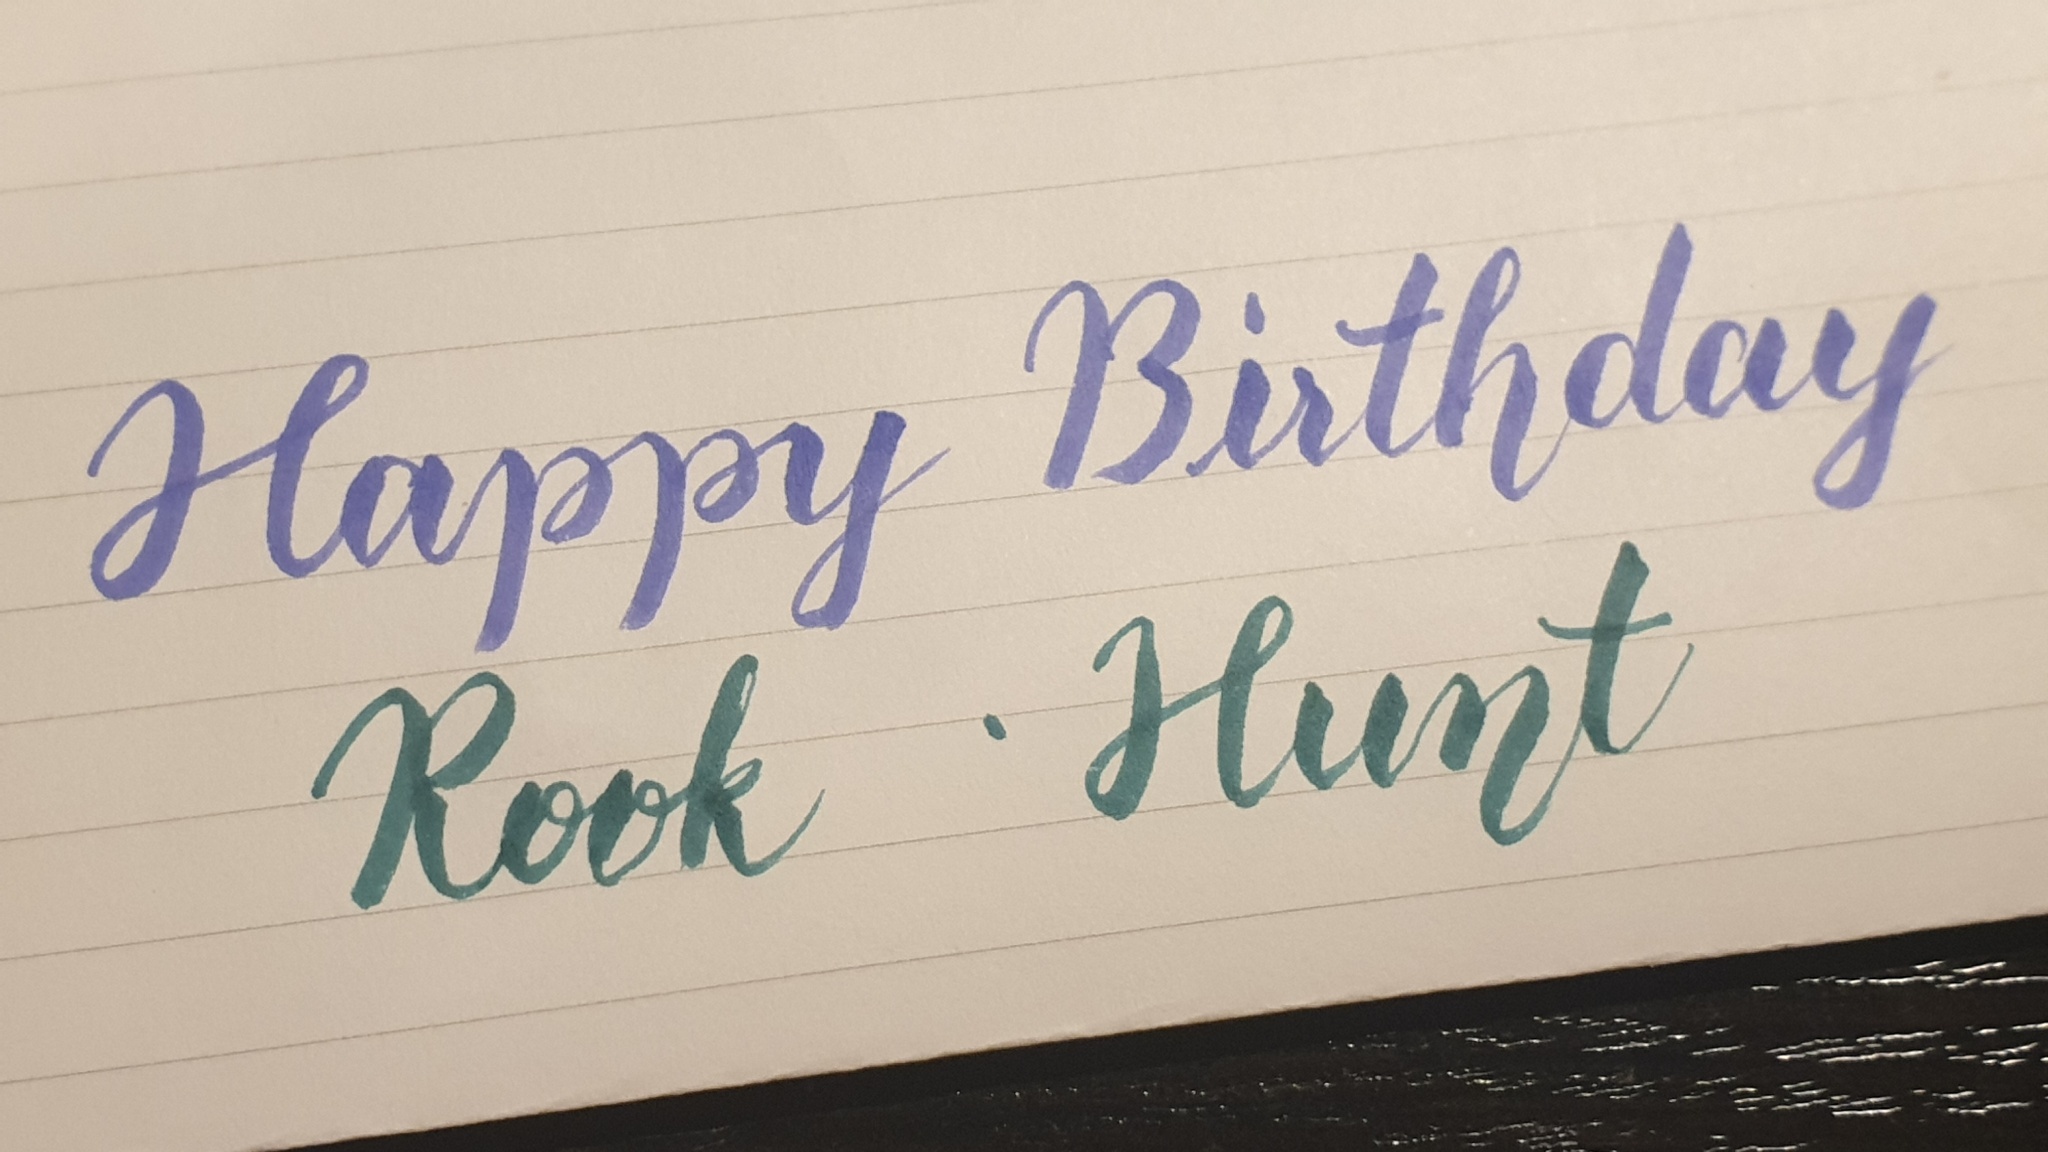 Happy Birthday
Rook · Hunt